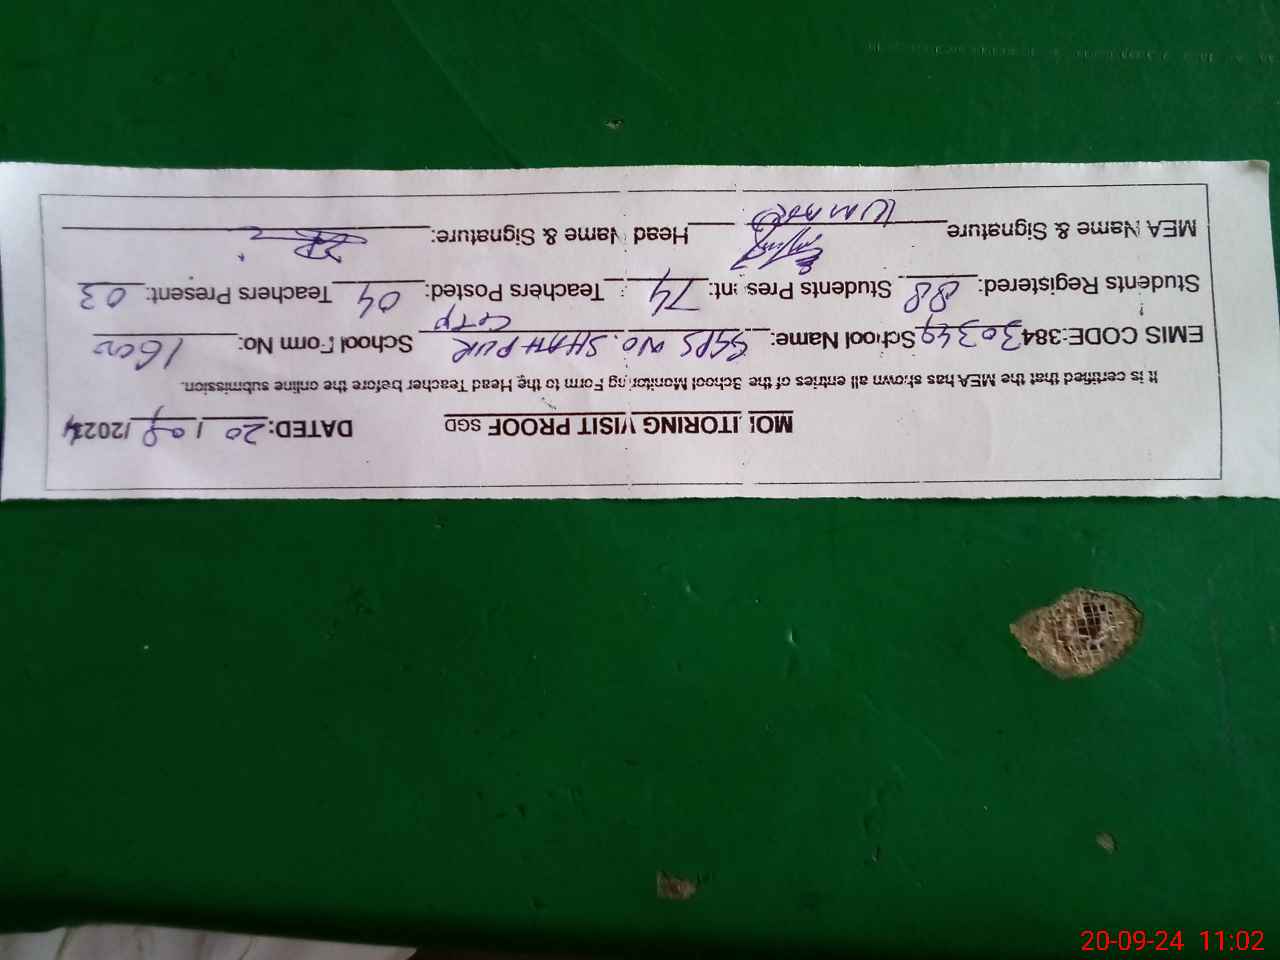 MONITORING VISIT PROOF SGD DATED: 20 / 09 /2024
It is certified that the MEA has shown all entries of the School Monitoring Form to the Head Teacher before the online submission.
EMIS CODE:38430349 School Name: GGPS NO. SHAHPUR School Form No:
Students Registered: 88 Students Present: 74 Teachers Posted: 04 Teachers Present: 03
MEA Name & Signature Head Name & Signature:
20-09-24 11:02